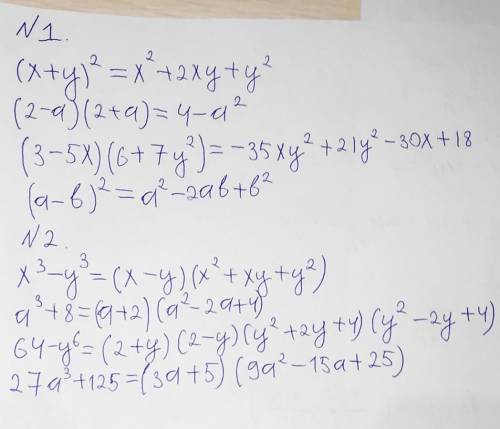 N1.
(x+y)² = x² + 2xy + y²
(2-a)(2+a) = 4-a²
(3-5x)(6+7y²) = -35xy² + 21y² - 30x + 18
(a-b)² = a² - 2ab + b²
N2.
x³-y³ = (x-y)(x²+xy+y²)
a³+8 = (a+2)(a²-2a+4)
64-y⁶ = (2+y)(2-y)(y²+2y+4)(y²-2y+4)
27a³+125 = (3a+5)(9a²-15a+25)